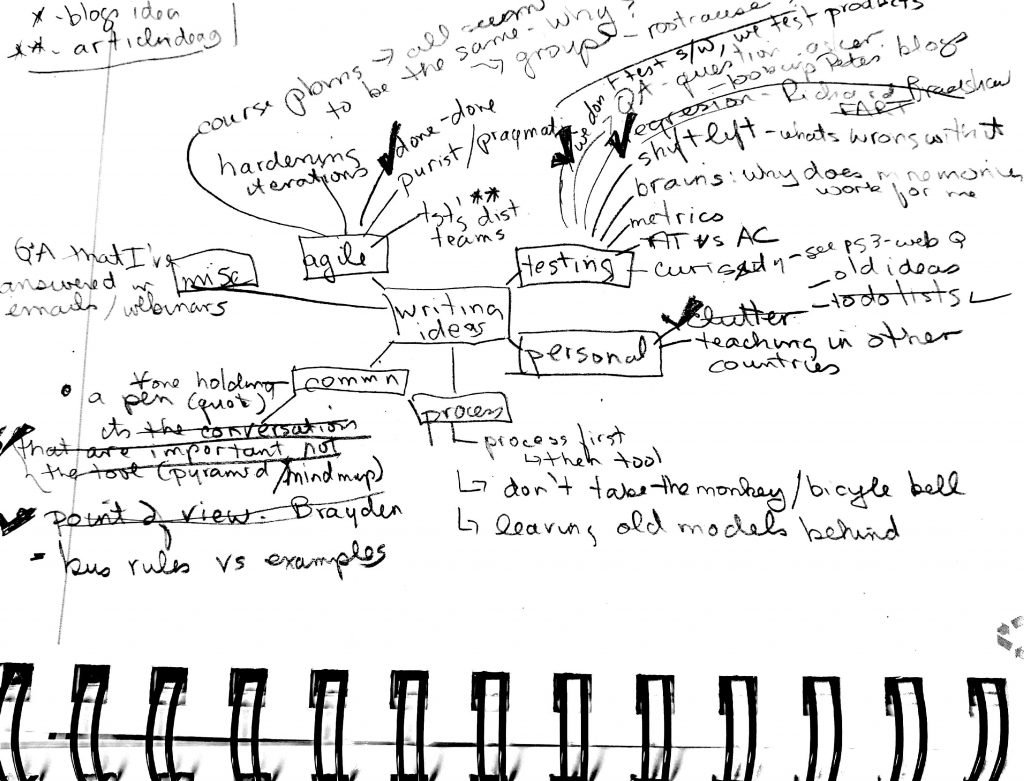 * - blogs idea
** - article ideas
course plans → all seem
to be the same - why?
↳ groups - rootcause
hardening
iterations
done-done
purist/pragmati
tgt's dist **
teams
agile
we don't test s/w, we test products
QA - question asker
- lookup Petes blogs
regression - Richard Bradshaw
FART
shift left - whats wrong with it
brains: why does mnemonics
work for me
metrics
AT vs AC
curiosity - see ps3 - web Q
testing
- old ideas
- todo lists
QA that I've
answered in
emails/webinars
misc
writing
ideas
personal
clutter
teaching in other
countries
commn
• a tone holding
pen (quot)
its the conversations
that are important not
the tool (pyramid/mindmap)
point of view. Brayden
- bus rules vs examples
process
process first
↳ then tool
↳ don't take the monkey/bicycle bell
↳ leaving old models behind